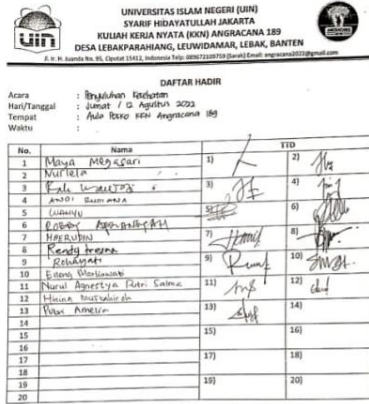 UNIVERSITAS ISLAM NEGERI (UIN)
SYARIF HIDAYATULLAH JAKARTA
KULIAH KERJA NYATA (KKN) ANGRACANA 189
DESA LEBAKPARAHIANG, LEUWIDAMAR, LEBAK, BANTEN
Jl. Ir. H. Juanda No. 95, Ciputat 15412, Indonesia Telp: 089672109759 (Sarah) Email: angracana2022@gmail.com
UIN
DAFTAR HADIR
Acara : Penyuluhan Kesehatan
Hari/Tanggal : Jumat / 12 Agustus 2022
Tempat : Aula Posko KKN Angracana 189
Waktu :
No. Nama TTD
1 Maya Megasari 1) 2)
2 Nurlela
3 3) 4)
4
5 Wahyu 5) 6)
6
7 Haerudin 7) 8)
8 Rendy
9 Rohayati 9) 10)
10
11 Nurul Agnestya Putri Salma 11) 12)
12
13 Amelia 13) 14)
14
15 15) 16)
16
17 17) 18)
18
19 19) 20)
20